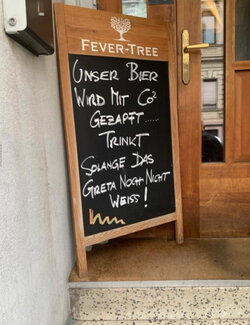 FEVER-TREE
UNSER BIER
WIRD MIT CO²
GEZAPFT.....
TRINKT
SOLANGE DAS
GRETA NOCH NICHT
WEISS!